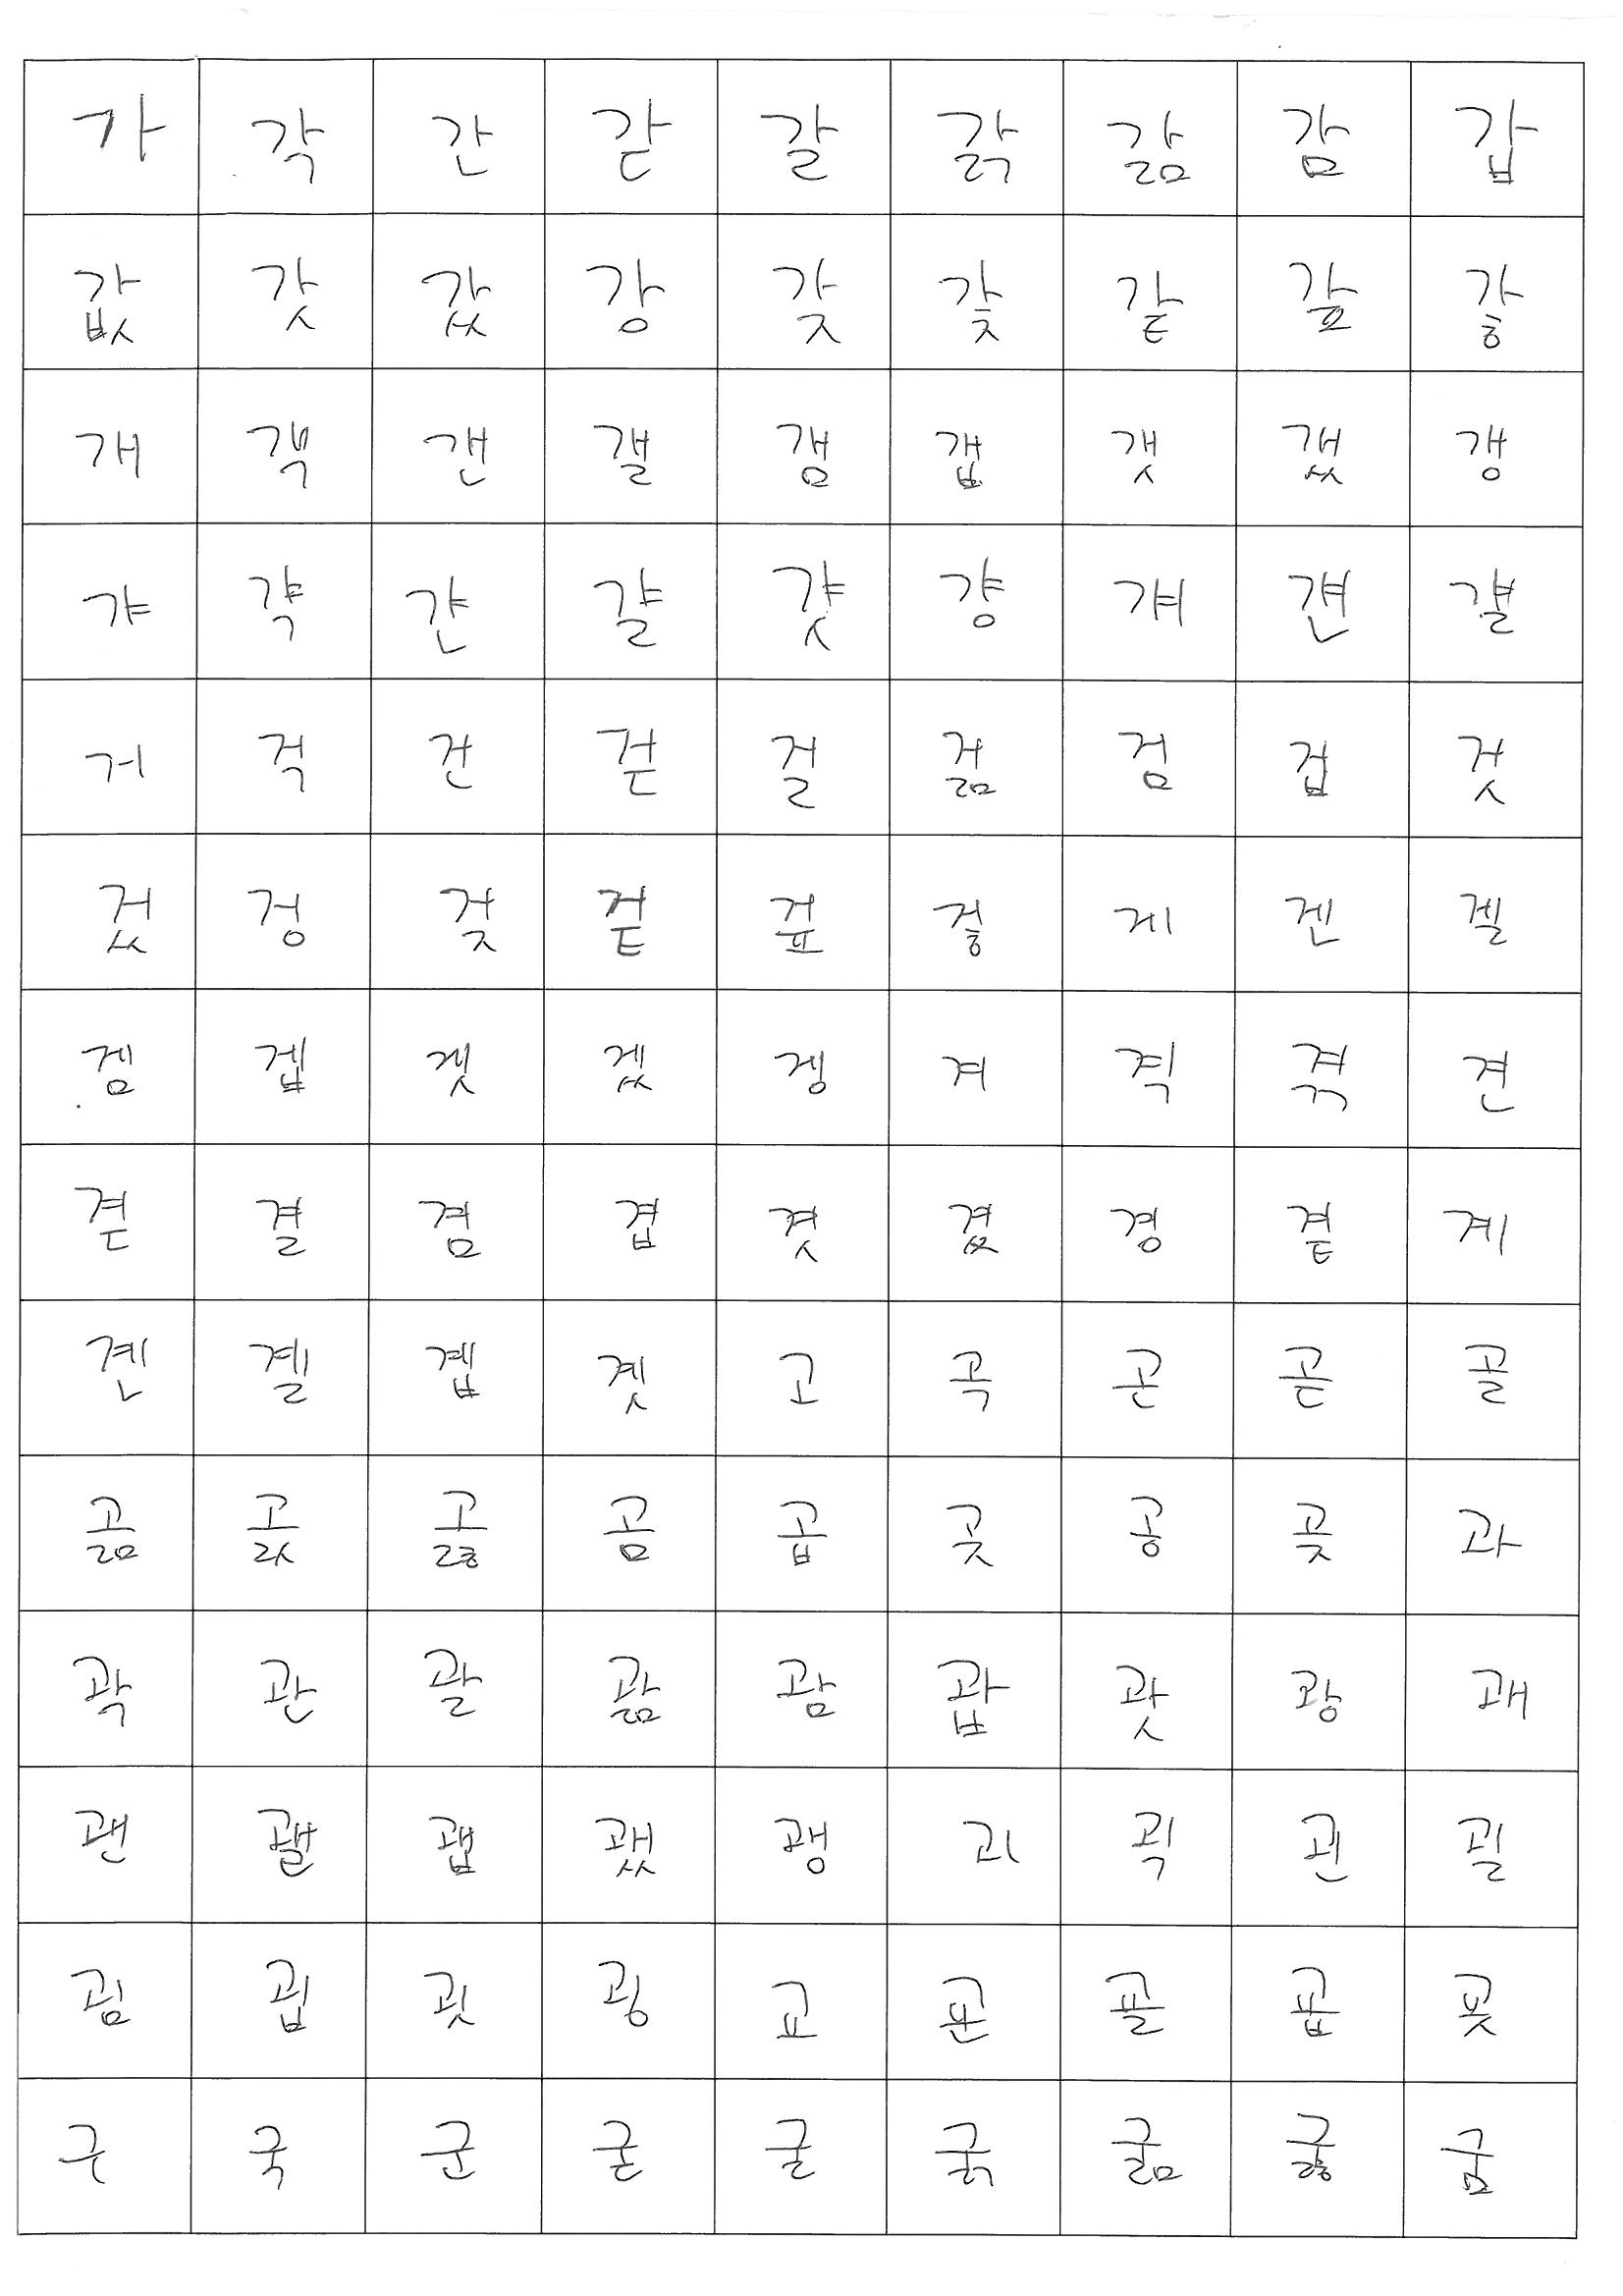 가 각 간 갇 갈 갉 갊 감 갑
값 갓 갔 강 갖 갗 같 갚 갛
개 객 갠 갤 갬 갭 갯 갰 갱
갸 갹 갼 걀 걋 걍 걔 걘 걜
거 걱 건 걷 걸 걺 검 겁 것
겄 겅 겆 겉 겊 겋 게 겐 겔
겜 겝 겟 겠 겡 겨 격 겪 견
겯 결 겸 겹 겻 겼 경 곁 계
곈 곌 곕 곗 고 곡 곤 곧 골
곪 곬 곯 곰 곱 곳 공 곶 과
곽 관 괄 괆 괌 괍 괏 광 괘
괜 괠 괩 괬 괭 괴 괵 괸 괼
굄 굅 굇 굉 교 굔 굘 굡 굣
구 국 군 굳 굴 굵 굶 굻 굼